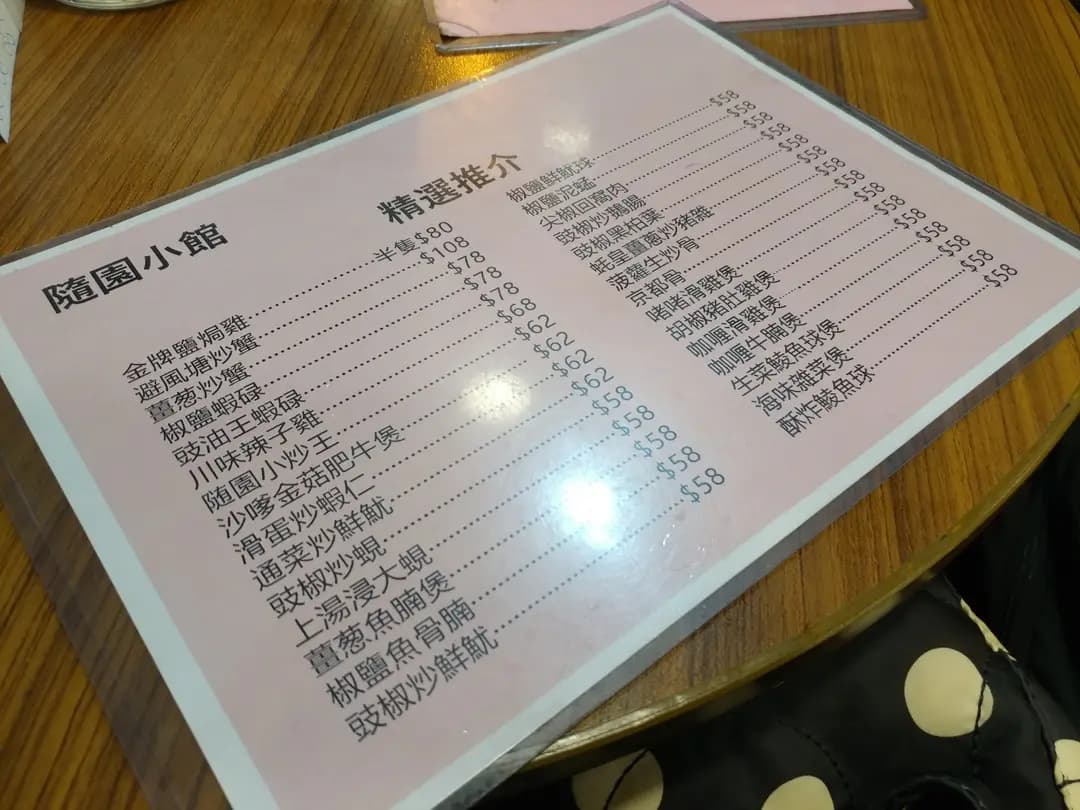 隨園小館
精選推介
金牌鹽焗雞 半隻$80
避風塘炒蟹 $108
薑葱炒蟹 $78
椒鹽蝦碌 $78
豉油王蝦碌 $78
川味辣子雞 $68
随園小炒王 $62
沙嗲金菇肥牛煲 $62
滑蛋炒蝦仁 $62
通菜炒鮮魷 $62
豉椒炒蜆 $58
上湯浸大蜆 $58
薑葱魚腩煲 $58
椒鹽魚骨腩 $58
豉椒炒鮮魷 $58
椒鹽鮮魷球 $58
椒鹽泥蜢 $58
尖椒回窩肉 $58
豉椒炒鵝腸 $58
豉椒黑柏球 $58
蚝皇薑蔥炒豬雜 $58
菠蘿生炒骨 $58
京都骨 $58
啫啫滑雞煲 $58
胡椒豬肚雞煲 $58
咖喱骨雞煲 $58
咖喱牛腩煲 $58
生菜鯪魚球煲 $58
海味雜菜煲 $58
酥炸鯪魚球 $58